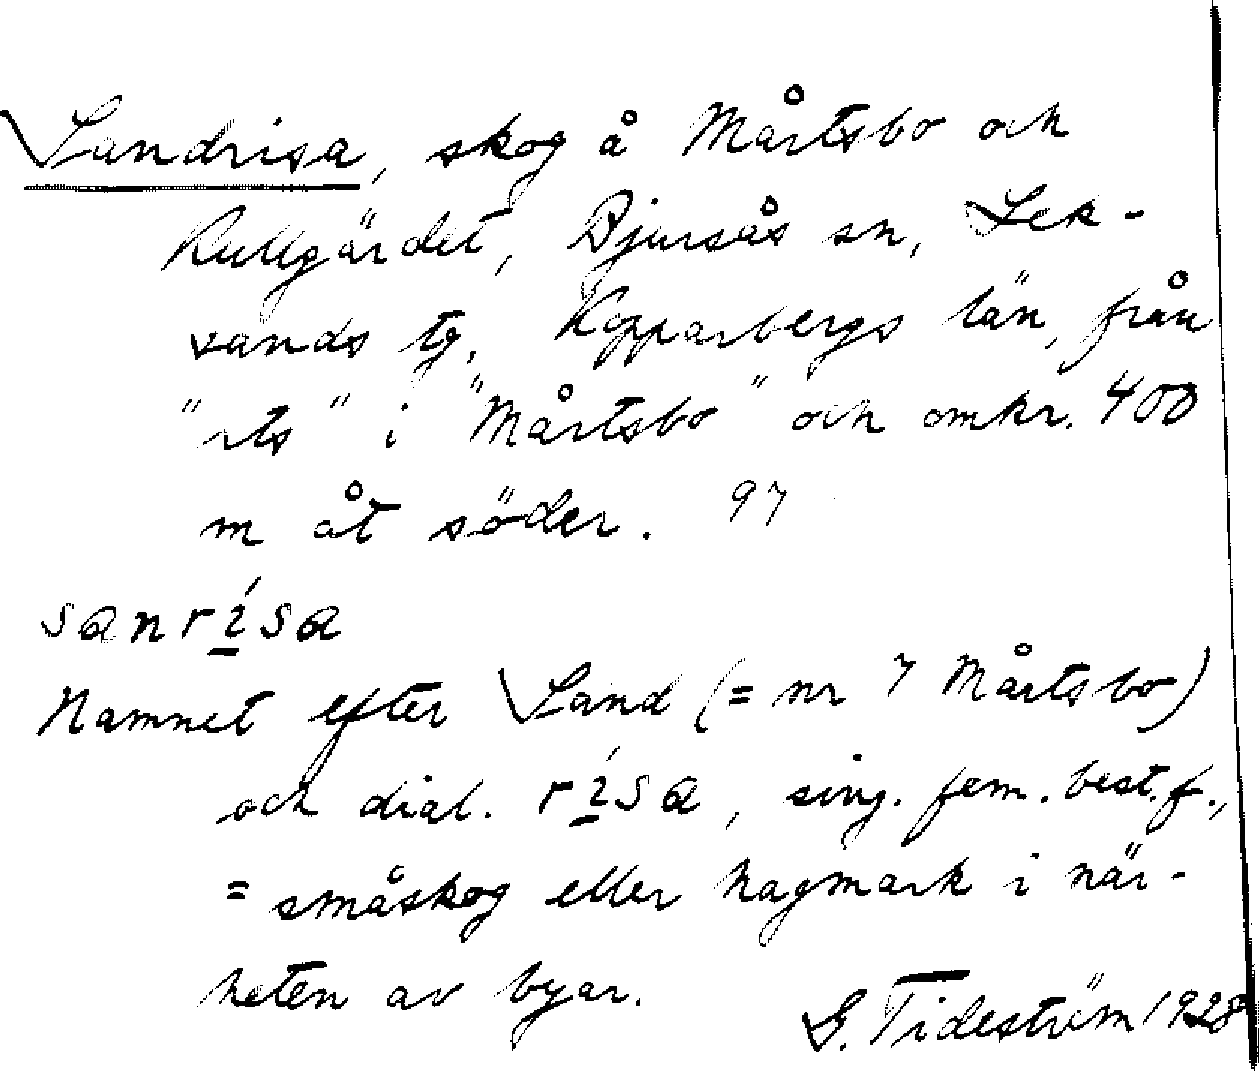 Sandrisa, skog å Mårtsbo och
Rullgärdet, Bjursås sn, Lek-
sands tg, Kopparbergs län, från
"rts" i "Mårtsbo" och omkr. 400
m åt söder. 97
sanrísa
Namnet efter Sand (= nr 7 Mårtsbo)
och dial. rísa, sing. fem. best. f.,
= småskog eller hagmark i när-
heten av byar.
G. Tideström 1928